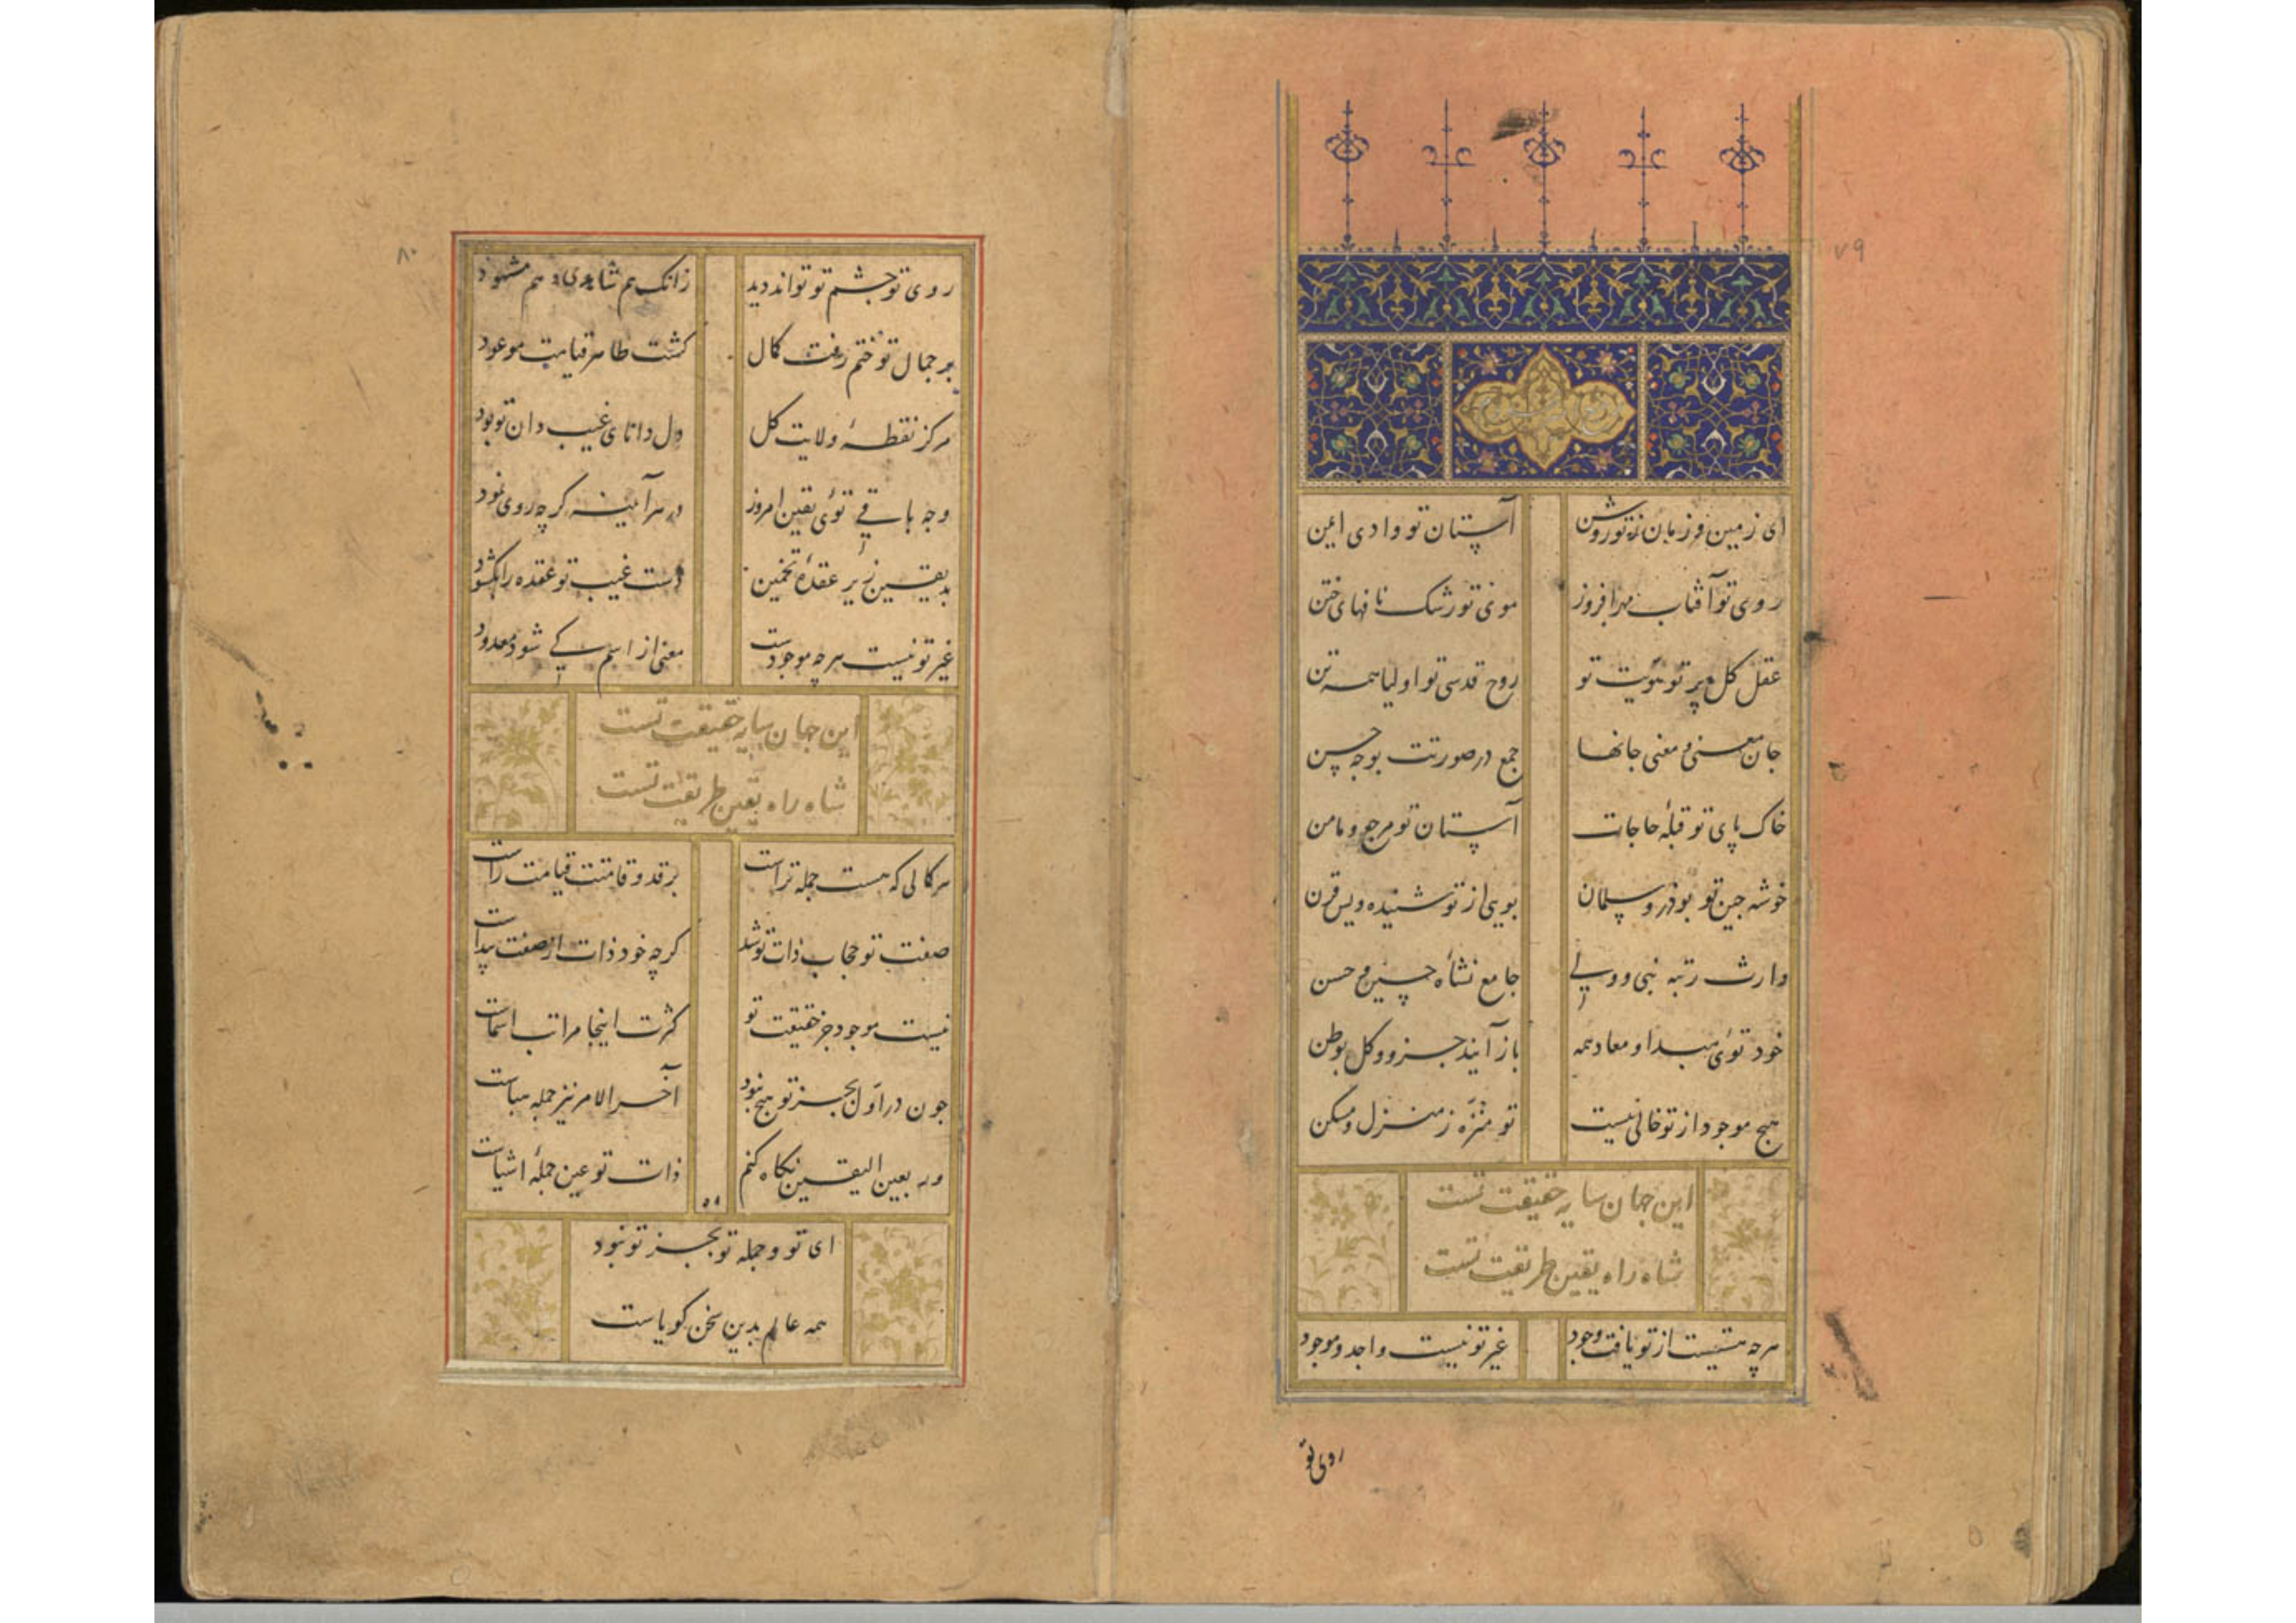 ۷۹
ای زمین و زمان ز تو روشن آستان تو وادی ایمن
روی تو آفتاب مهرافروز موی تو رشک نافهای ختن
عقل کل پرتو هویت تو روح قدسی تو اولیا همه تن
جان معنی و معنی جانها جمع در صورتت بوجه حسن
خاک پای تو قبلهٔ حاجات آستان تو مرجع و مامن
خوشه جین تو بوذر و سلمان بویی از تو شنیده ویس قرن
وارث رتبه نبی و ولی جامع نشأه حسین و حسن
خود توئی مبدا و معاد همه باز آیند جزو و کل بوطن
هیج موجود از تو خالی نیست تو منزّه ز منزل و مسکن
این جهان سایه حقیقت تست
شاه راه یقین طریقت تست
هرچه هستیست از تو یافت وجود غیر تو نیست واجد و موجود
روی تو
۸۰
روی تو جشم تو تواند دید زانک هم شاهدی و هم مشهود
بر جمال تو ختم رفت کمال کشت ظاهر قیامت موعود
مرکز نقطهٔ ولایت کل دل دانای غیب دان تو بود
وجه باقی توئی یقین امروز در هر آینه کرچه روی نمود
بدیقین زیر عقدهٔ تخمین دست غیب تو عقده را بکشود
غیر تو نیست هرچه موجودست معنی از اسم کی شود معدود
این جهان سایه حقیقت تست
شاه راه یقین طریقت تست
هر کمالی که هست جمله تراست بر قد و قامتت قیامت راست
صفت تو حجاب ذات تو شد کرچه خود ذات از صفت پیداست
نیست موجود جز حقیقت تو کثرت اینجا مراتب اسماست
جون در اوّل بجز تو هیج نبود آخر الامر نیز جمله هباست
ور بعین الیقین نکاه کنم ذات تو عین جملهٔ اشیاست
ای تو و جمله تو بجز تو نبود
همه عالم بدین سخن کویاست